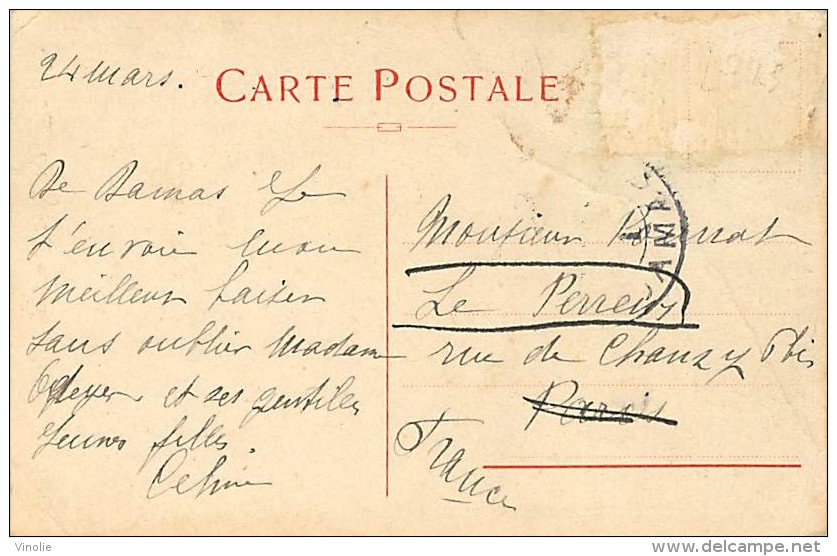 24 mars.
CARTE POSTALE
De Damas Je
t'envoie mon
meilleur baiser
sans oublier Madame
et ses gentilles
jeunes filles.
Celine
Monsieur
Le Perreux
rue de Chanzy 6 bis
Paris
France
DAMAS
Vinolie
www.delcampe.net